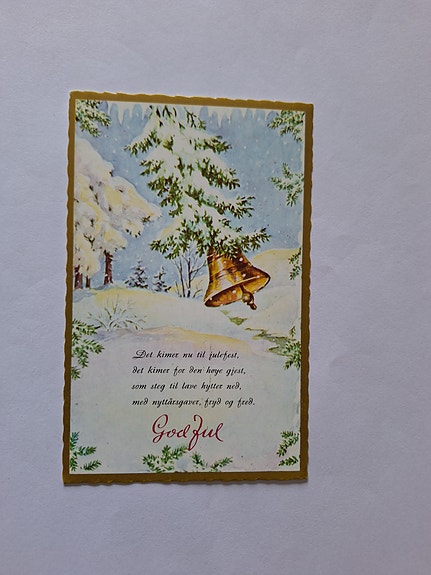 Det kimer nu til julefest,
det kimer for den høye gjest,
som steg til lave hytter ned,
med nyttårsgaver, fryd og fred.
God Jul